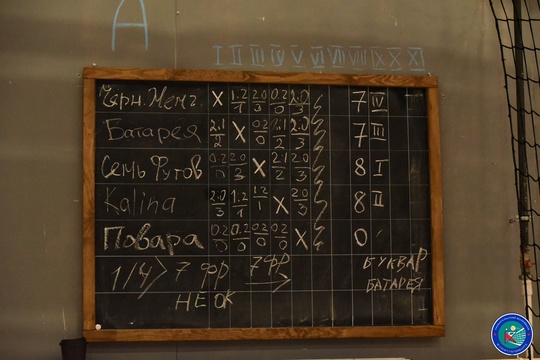 A
I II III IV V VI VII VIII IX X XI
Черн. Жемч. X 1:2/1 2:0/3 0:2/0 2:0/3 7 IV
Батарея 2:1/2 X 0:2/0 2:1/2 2:0/3 7 III
Семь Футов 0:2/0 2:0/3 X 2:1/2 2:0/3 8 I
Kalina 2:0/3 1:2/1 1:2/1 X 2:0/3 8 II
Повара 0:2/0 0:2/0 0:2/0 0:2/0 X 0
1/4 > 7 фр 7фр БУКВАР
НЕ ОК БАТАРЕЯ